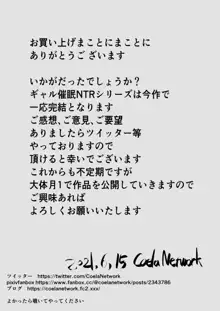 お買い上げまことにまことに
ありがとうございます
いかがだったでしょうか？
ギャル催眠NTRシリーズは今作で
一応完結となります
ご感想、ご意見、ご要望
ありましたらツイッター等
やっておりますので
頂けると幸いでございます
これからも不定期ですが
大体月1で作品を公開していきますので
ご興味あれば
よろしくお願いいたします
2021,6,15 CoelaNetwork
ツイッター https://twitter.com/CoelaNetwork
pixivfanbox https://www.fanbox.cc/@coelanetwork/posts/2343786
ブログ https://coelanetwork.fc2.xxx/
よかったら覗いてやってください